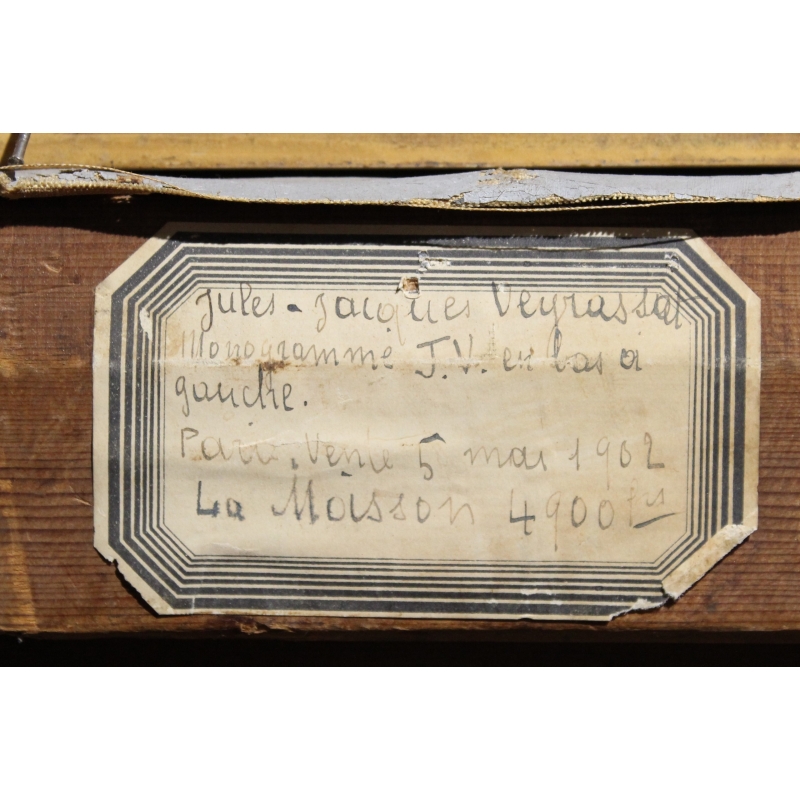 Jules-Jacques Veyrassat
Monogramme J.V. en bas à
gauche.
Paris. Vente 5 mai 1902
La Moisson 4900 frs